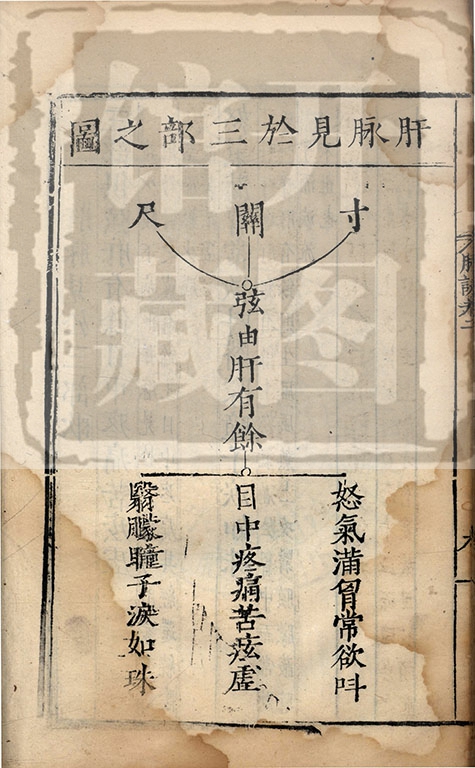 肝脉見於三部之圖
寸
關
尺
弦由肝有餘
怒氣滿胷常欲呌
目中疼痛苦痃虛
翳朦瞳子淚如珠
館
藏图